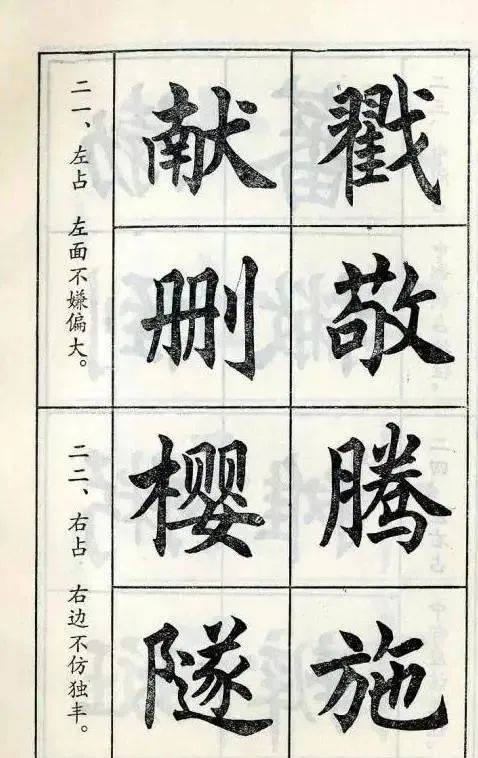 二一、左占 左面不嫌偏大。
献 戳
删 敬
二二、右占 右边不仿独丰。
樱 腾
隧 施